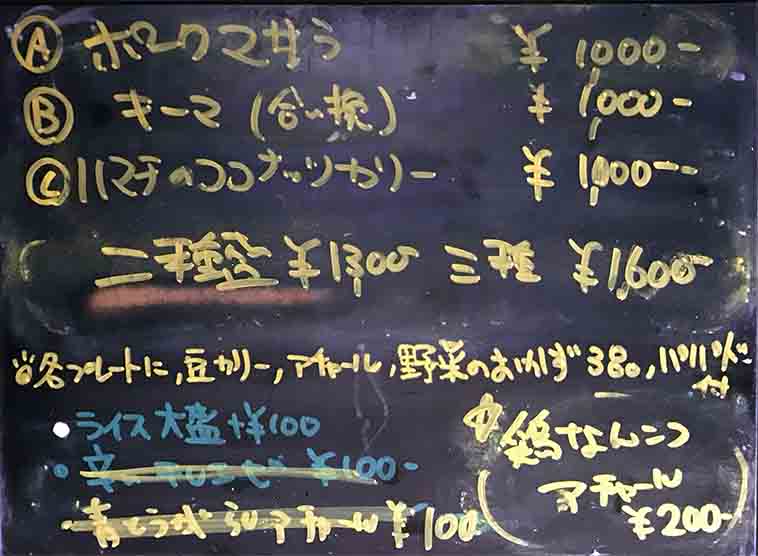 Ⓐ ポークマサラ ¥1000-
Ⓑ キーマ (合い挽) ¥1,000-
Ⓒ ハマチのココナッツカリー ¥1,000-
二種盛 ¥1,300- 三種 ¥1,600-
各プレートに,豆カリー,アチャール,野菜のおかず3品,パパド付
・ライス大盛+¥100
・辛い ¥100-
・青とうがらしアチャール ¥100
鶏なんこつ
アチャール
¥200-